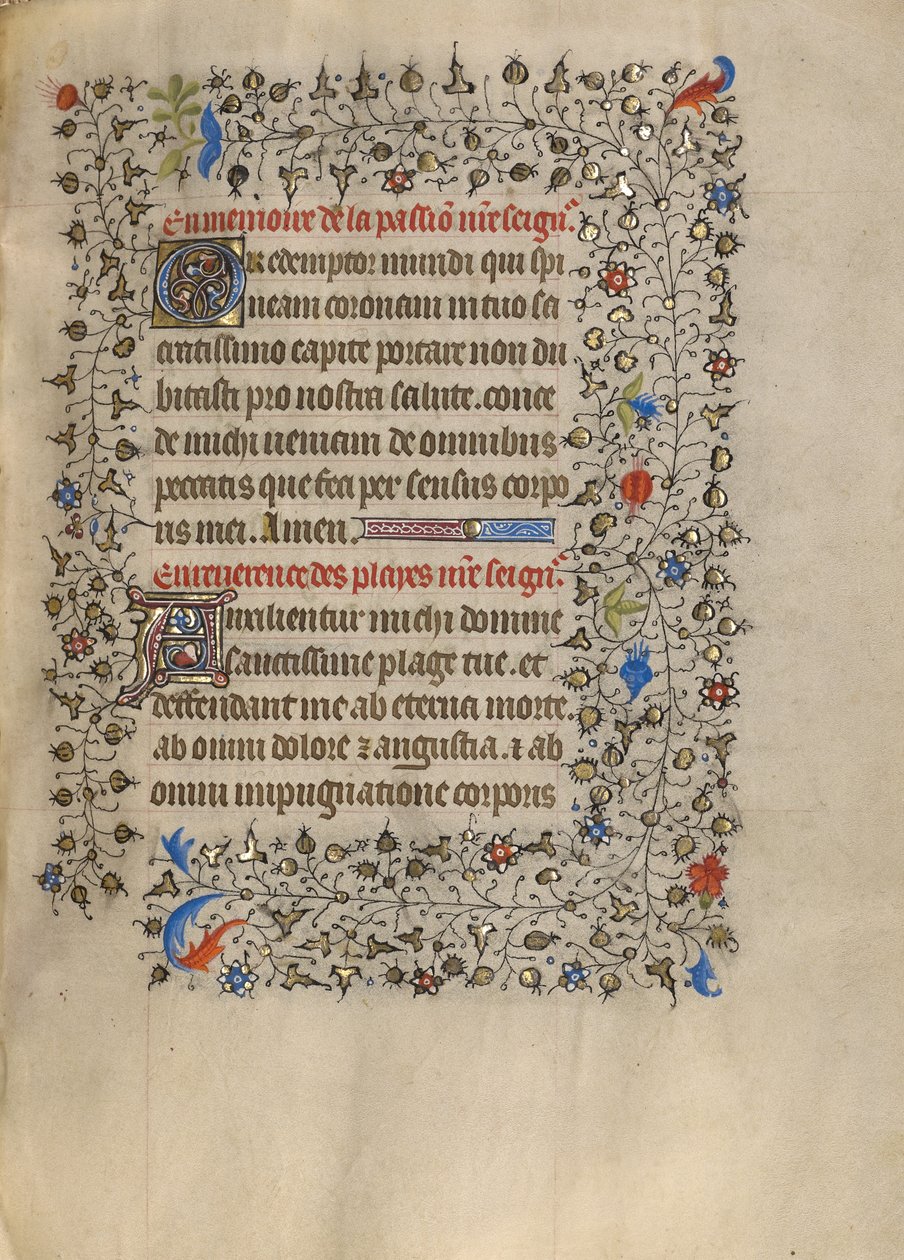 En memoire de la passiō nr̄e seign̄r.
O redemptor mundi qui spi
neam coronam in tuo sa
cratissimo capite portare non du
bitasti pro nostra salute. conce
de michi ueniam de omnibus
peccatis que feci per sensus corpo
ris mei. Amen.
En reuerence des playes nr̄e seign̄r.
Auxilientur michi domine
sanctissime plage tue. et
deffendant me ab eterna morte.
ab omni dolore ⁊ angustia. ⁊ ab
omni impugnatione corporis